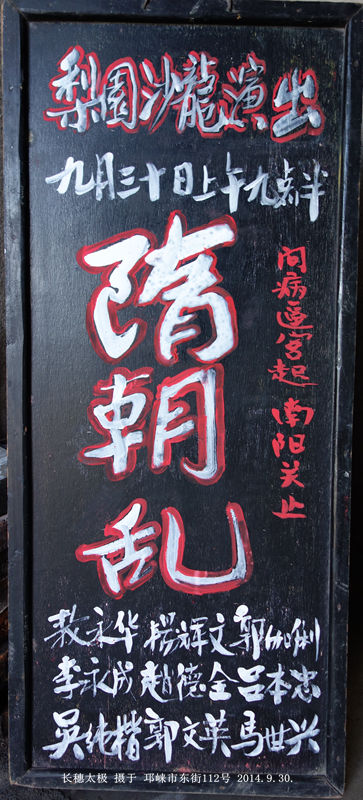 梨園沙龍演出
九月三十日上午九点半
问病逼宫起 南阳关止
隋朝乱
敖永华 杨辉文 郭加俐
李永成 赵德全 吕本忠
吴纯楷 郭文英 马世兴
长穗太极 摄于 邛崃市东街112号 2014.9.30.